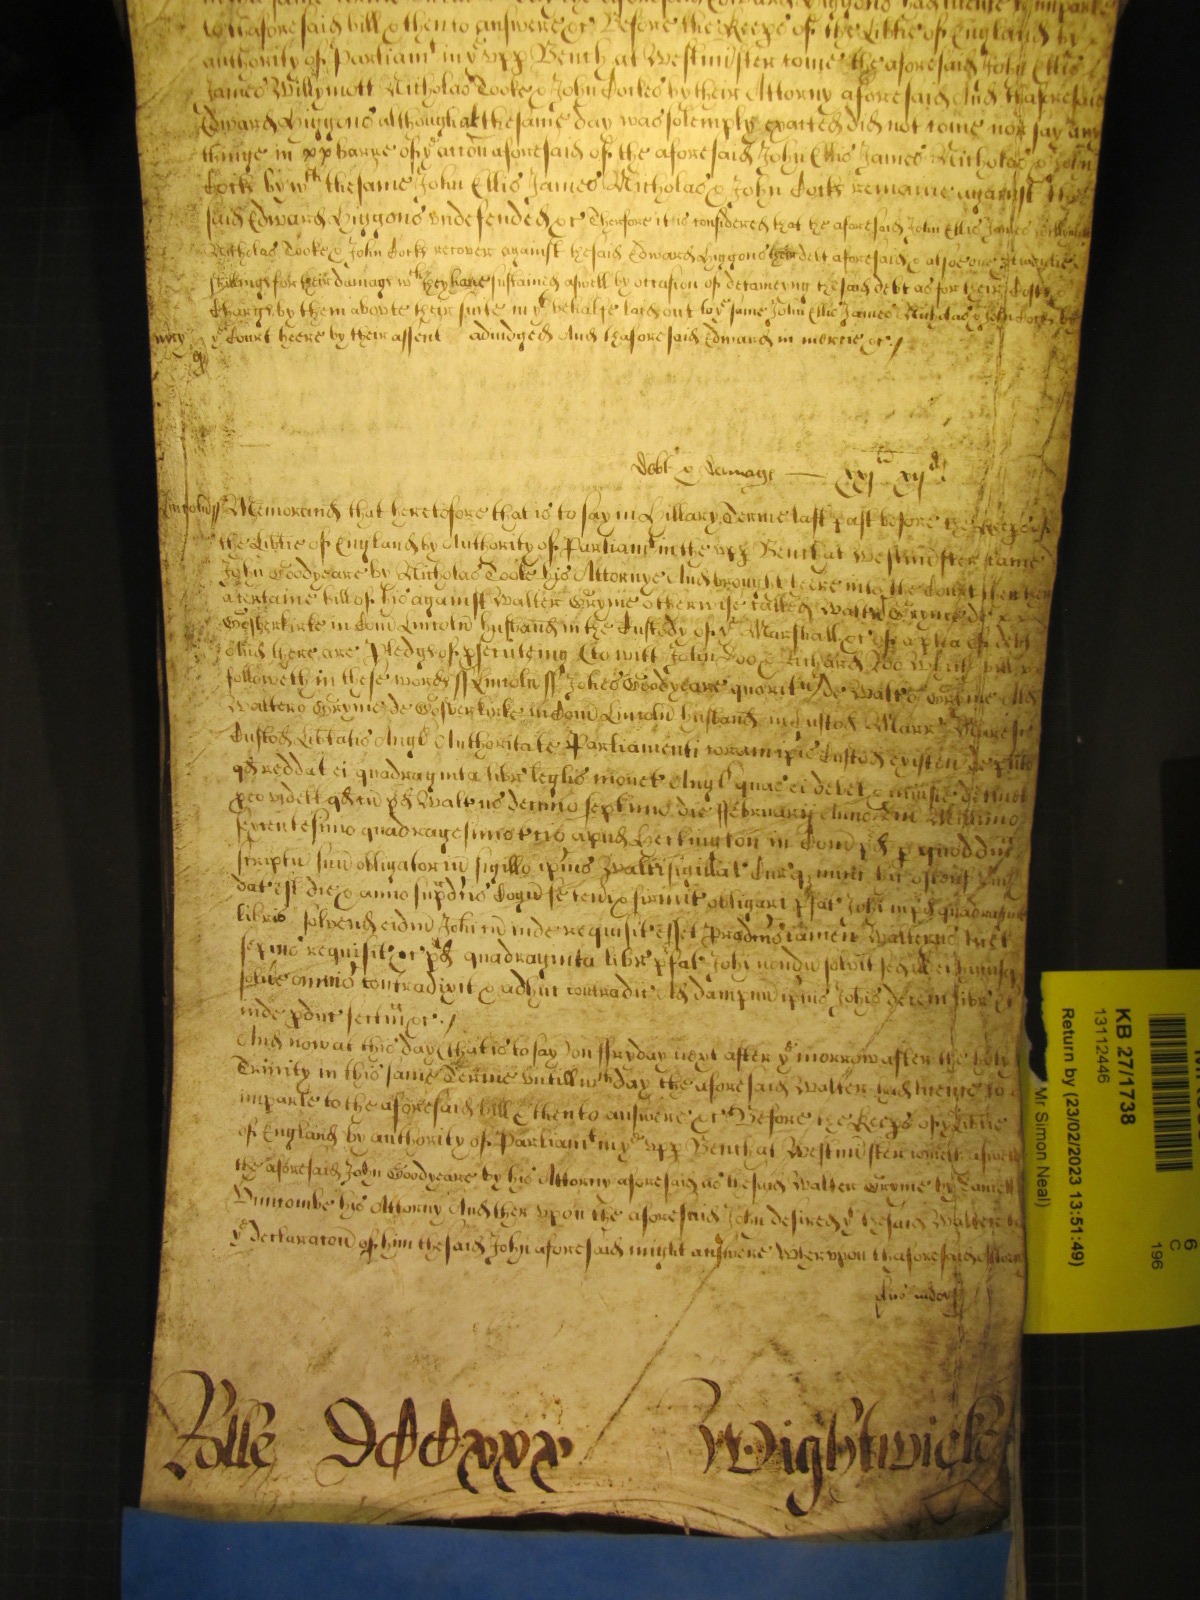 to thaforesaid bill & then to answere &c Before the Keeps of the Libtie of England by
authority of Parliamt in ye upp Bench at Westminster come the aforesaid John Ellis
James Willymott Nicholas Cooke & John Cockes by their Attorny aforesaid And thaforesaid
Edward Higgons although at the same day was solemply exacted did not come nor say any
thinge in barre of ye accon aforesaid of the aforesaid John Ellis James Nicholas & John
Cocks by wch the same John Ellis James Nicholas & John Cocks remaine against the
said Edward Higgons undefended &c Therfore it is considered that the aforesaid John Ellis James Willymott
Nicholas Cooke & John Cocks recover against the said Edward Higgons their debt aforesaid & alsoe one & twentie
shillings for their damage wch they have susteined aswell by occasion of deteineing the said debt as for their Costs &
Charges by them aboute their suite in yt behalfe laid out to ye same John Ellis James Nicholas & John Cocks by
ye Court heere by their assent adiudged And thaforesaid Edward in mercie &c
mcy
Debt & damage — xxj li xij d
Lincoln ss Memorand that heretofore that is to say in Hillary Terme last past before the Keeps of
the Libtie of England by Authority of Parliamt in the upp Bench at Westminster came
John Goodyeare by Nicholas Cooke his Attornye And brought heere into the Court then there
a certaine bill of his against Walter Gryme otherwise called Walter Gryme de
Gosberkirke in Com Lincoln husband in the Custody of ye Marshall &c of a plea of debt
And there are Pledges of psecuteing (to witt John Doo & Richard Roo which bill
followeth in these words ss Lincoln ss Johes Goodyeare querit de Waltero Gryme als
Waltero Gryme de Gosberkirke in Com Lincoln husband in Custod Marr Maresc
Custod Libtatis Angl Authoritate Parliamenti coram ipis Custod existen de plito
qd reddat ei quadraginta libr leglis monet Angl quas ei debet & iniuste detinet
p eo videlt qd cu pd Walterus decimo septimo die ffebruarij Anno Dni Millimo
sexcentesimo quadragesimo tcio apud Heckington in Com pd p quoddm
scriptu suu obligatoriu sigillo ipius Walteri sigillat Curq
dat est die & anno supadcis Cogn se teneri & firmit obligari pfat Johi in pd quadraginta
libris solvend eidm Johi cu inde requisit esset Predcus tamen Walterus licet
sepius requisit &c pd quadraginta libr pfat Johi nondu solvit sed ill ei hucusq
solve omino contradixit & adhuc contradic Ad dampnu ipius Johis decem libr Et
inde pduc sectam &c
And now at this day (that is to say) on ffryday next after ye morrow after the holy
Trinity in this same Terme untill wch day the aforesaid Walter had licence to
imparle to the aforesaid bill & then to answere &c Before the Keeps of ye Libtie
of England by authority of Parliamt in ye upp Bench at Westminster cometh aswell
the aforesaid John Goodyeare by his Attorny aforesaid as the said Walter Gryme by Daniell
Duncombe his Attorny And therupon the aforesaid John desired yt the said Walter to
ye declaracon of him the said John aforesaid might answere Wherupon thaforesaid
Rolle DCCxxx Wightwicke
KB 27/1738
13112446
Return by (23/02/2023 13:51:49)
Mr Simon Neal)
6
C
196